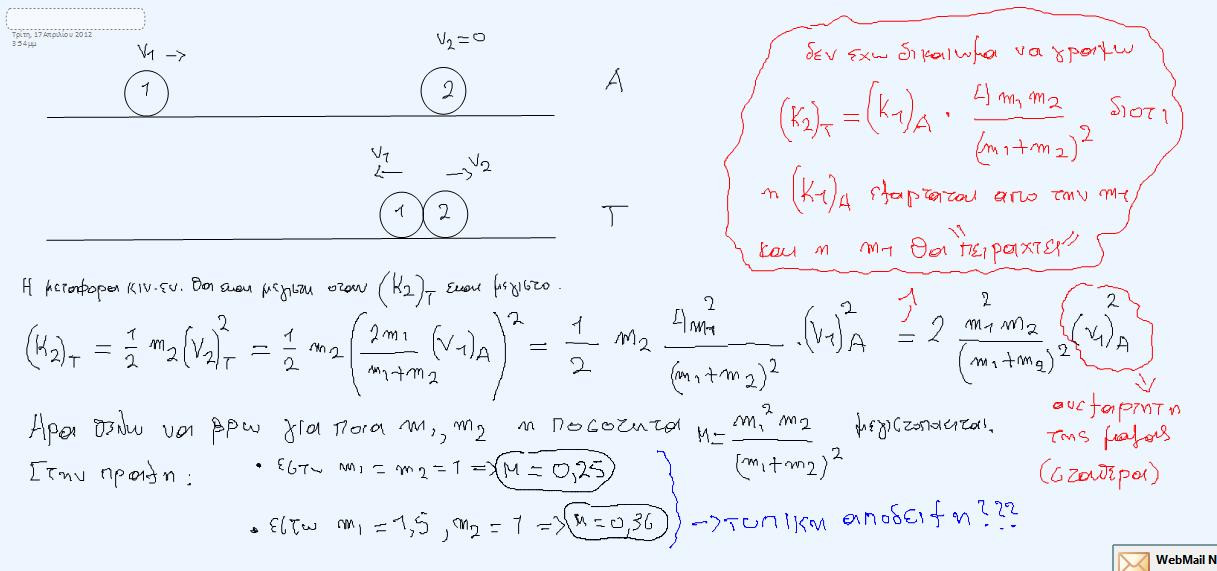 Τρίτη, 17 Απριλίου 2012
3:54 μμ
V1 →
V2=0
1
2
A
V1
←
→V2
1
2
T
δεν εχω δικαιωμα να γραψω
(K2)T = (K1)A · 4m1m2/(m1+m2)^2 διοτι
η (K1)A εξαρταται απο την m1
και η m1 θα "πειραχτει"
Η μεταφορα κιν.εν. θα ειναι μεγιστη οταν (K2)T ειναι μεγιστο.
(K2)T = 1/2 m2(V2)T^2 = 1/2 m2(2m1/(m1+m2) (V1)A)^2 = 1/2 m2 4m1^2/(m1+m2)^2 · (V1)A^2 = 2 m1^2 m2/(m1+m2)^2 (V1)A^2
1
ανεξαρτητη
της μαζας
(σταθερα)
Αρα θελω να βρω για ποια m1, m2 η ποσοτητα M = m1^2 m2/(m1+m2)^2 μεγιστοποιειται.
Στην πραξη:
• εστω m1 = m2 = 1 => M = 0,25
• εστω m1 = 1,5, m2 = 1 => M = 0,36
→ τυπικη αποδειξη???
WebMail N